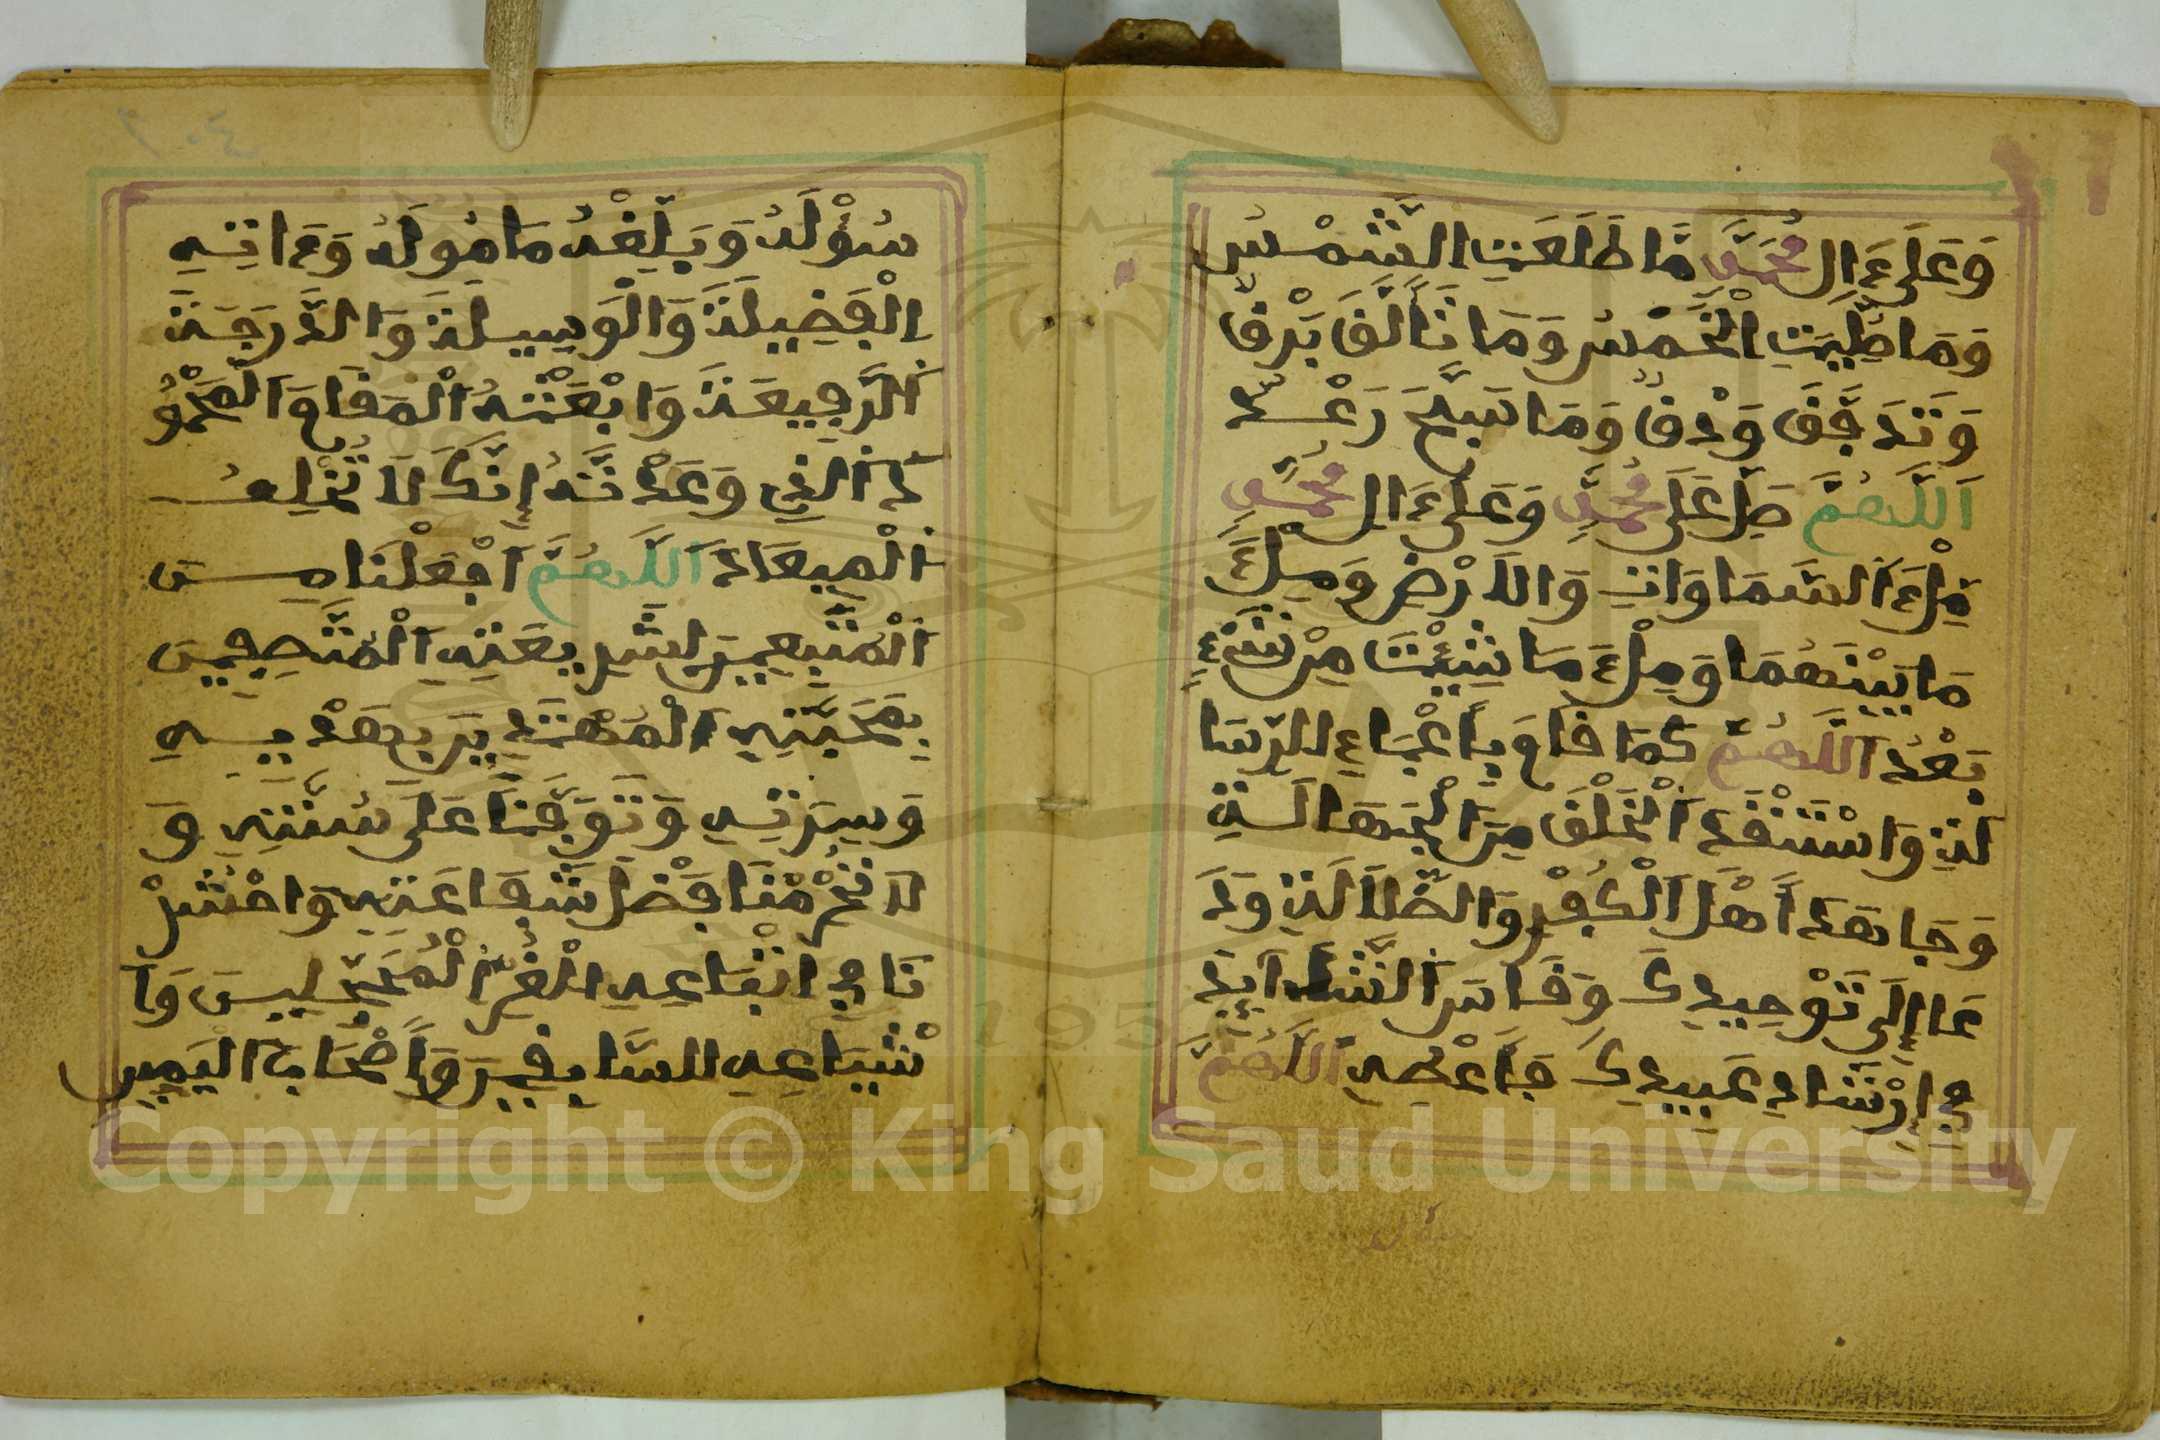 وَعَلَىٰ ءَالِ مُحَمَّدٍ مَّا طَلَعَتِ الشَّمْسُ
وَمَا صُلِّيَتِ الْخَمْسُ وَمَا تَأَلَّقَ بَرْقٌ
وَتَدَفَّقَ وَدْقٌ وَمَا سَبَّحَ رَعْدٌ
اَللَّهُمَّ صَلِّ عَلَى مُحَمَّدٍ وَعَلَىٰ ءَالِ مُحَمَّدٍ
مِّلْءَ اَلسَّمَاوَاتِ وَالْاَرْضِ وَمِلْءَ
مَا بَيْنَهُمَا وَمِلْءَ مَا شِئْتَ مِن شَيْءٍ
بَعْدُ اَللَّهُمَّ كَمَا قَامَ بِأَعْبَاءِ الرِّسَا
لَةِ وَاسْتَنْقَذَ اَلْخَلْقَ مِنَ الْجَهَالَةِ
وَجَاهَدَ أَهْلَ اَلْكُفْرِ وَالضَّلَالَةِ وَدَ
عَا إِلَى تَوْحِيدِكَ وَقَاسَى اَلشَّدَائِدَ
فِي إِرْشَادِ عَبِيدِكَ فَأَعْطِهِ اَللَّهُمَّ
سُؤْلَهُ وَبَلِّغْهُ مَامُولَهُ وَءَاتِهِ
اِلْفَضِيلَةَ وَالْوَسِيلَةَ وَالدَّرَجَةَ
اَلرَّفِيعَةَ وَابْعَثْهُ اُلْمَقَامَ اَلْمَحْمُو
دَ اَلذِي وَعَدْتَّهُ إِنَّكَ لَا تُخْلِفُ
اُلْمِيعَادَ اَللَّهُمَّ اَجْعَلْنَا مِنَ
اَلْمُتَّبِعِينَ لِشَرِيعَتِهِ اِلْمُتَّصِفِينَ
بِمَحَبَّتِهِ اِلْمُهْتَدِينَ بِهَدْيِهِ
وَسِيرَتِهِ وَتَوَفَّنَا عَلَى سُنَّتِهِ وَ
لَا تَحْرِمْنَا فَضْلَ شَفَاعَتِهِ وَاحْشُرْ
نَا فِي اتْبَاعِهِ اِلْغُرِّ اِلْمُحَجَّلِينَ وَأَ
شْيَاعِهِ السَّابِقِينَ وَأَصْحَابِ اَلْيَمِينِ